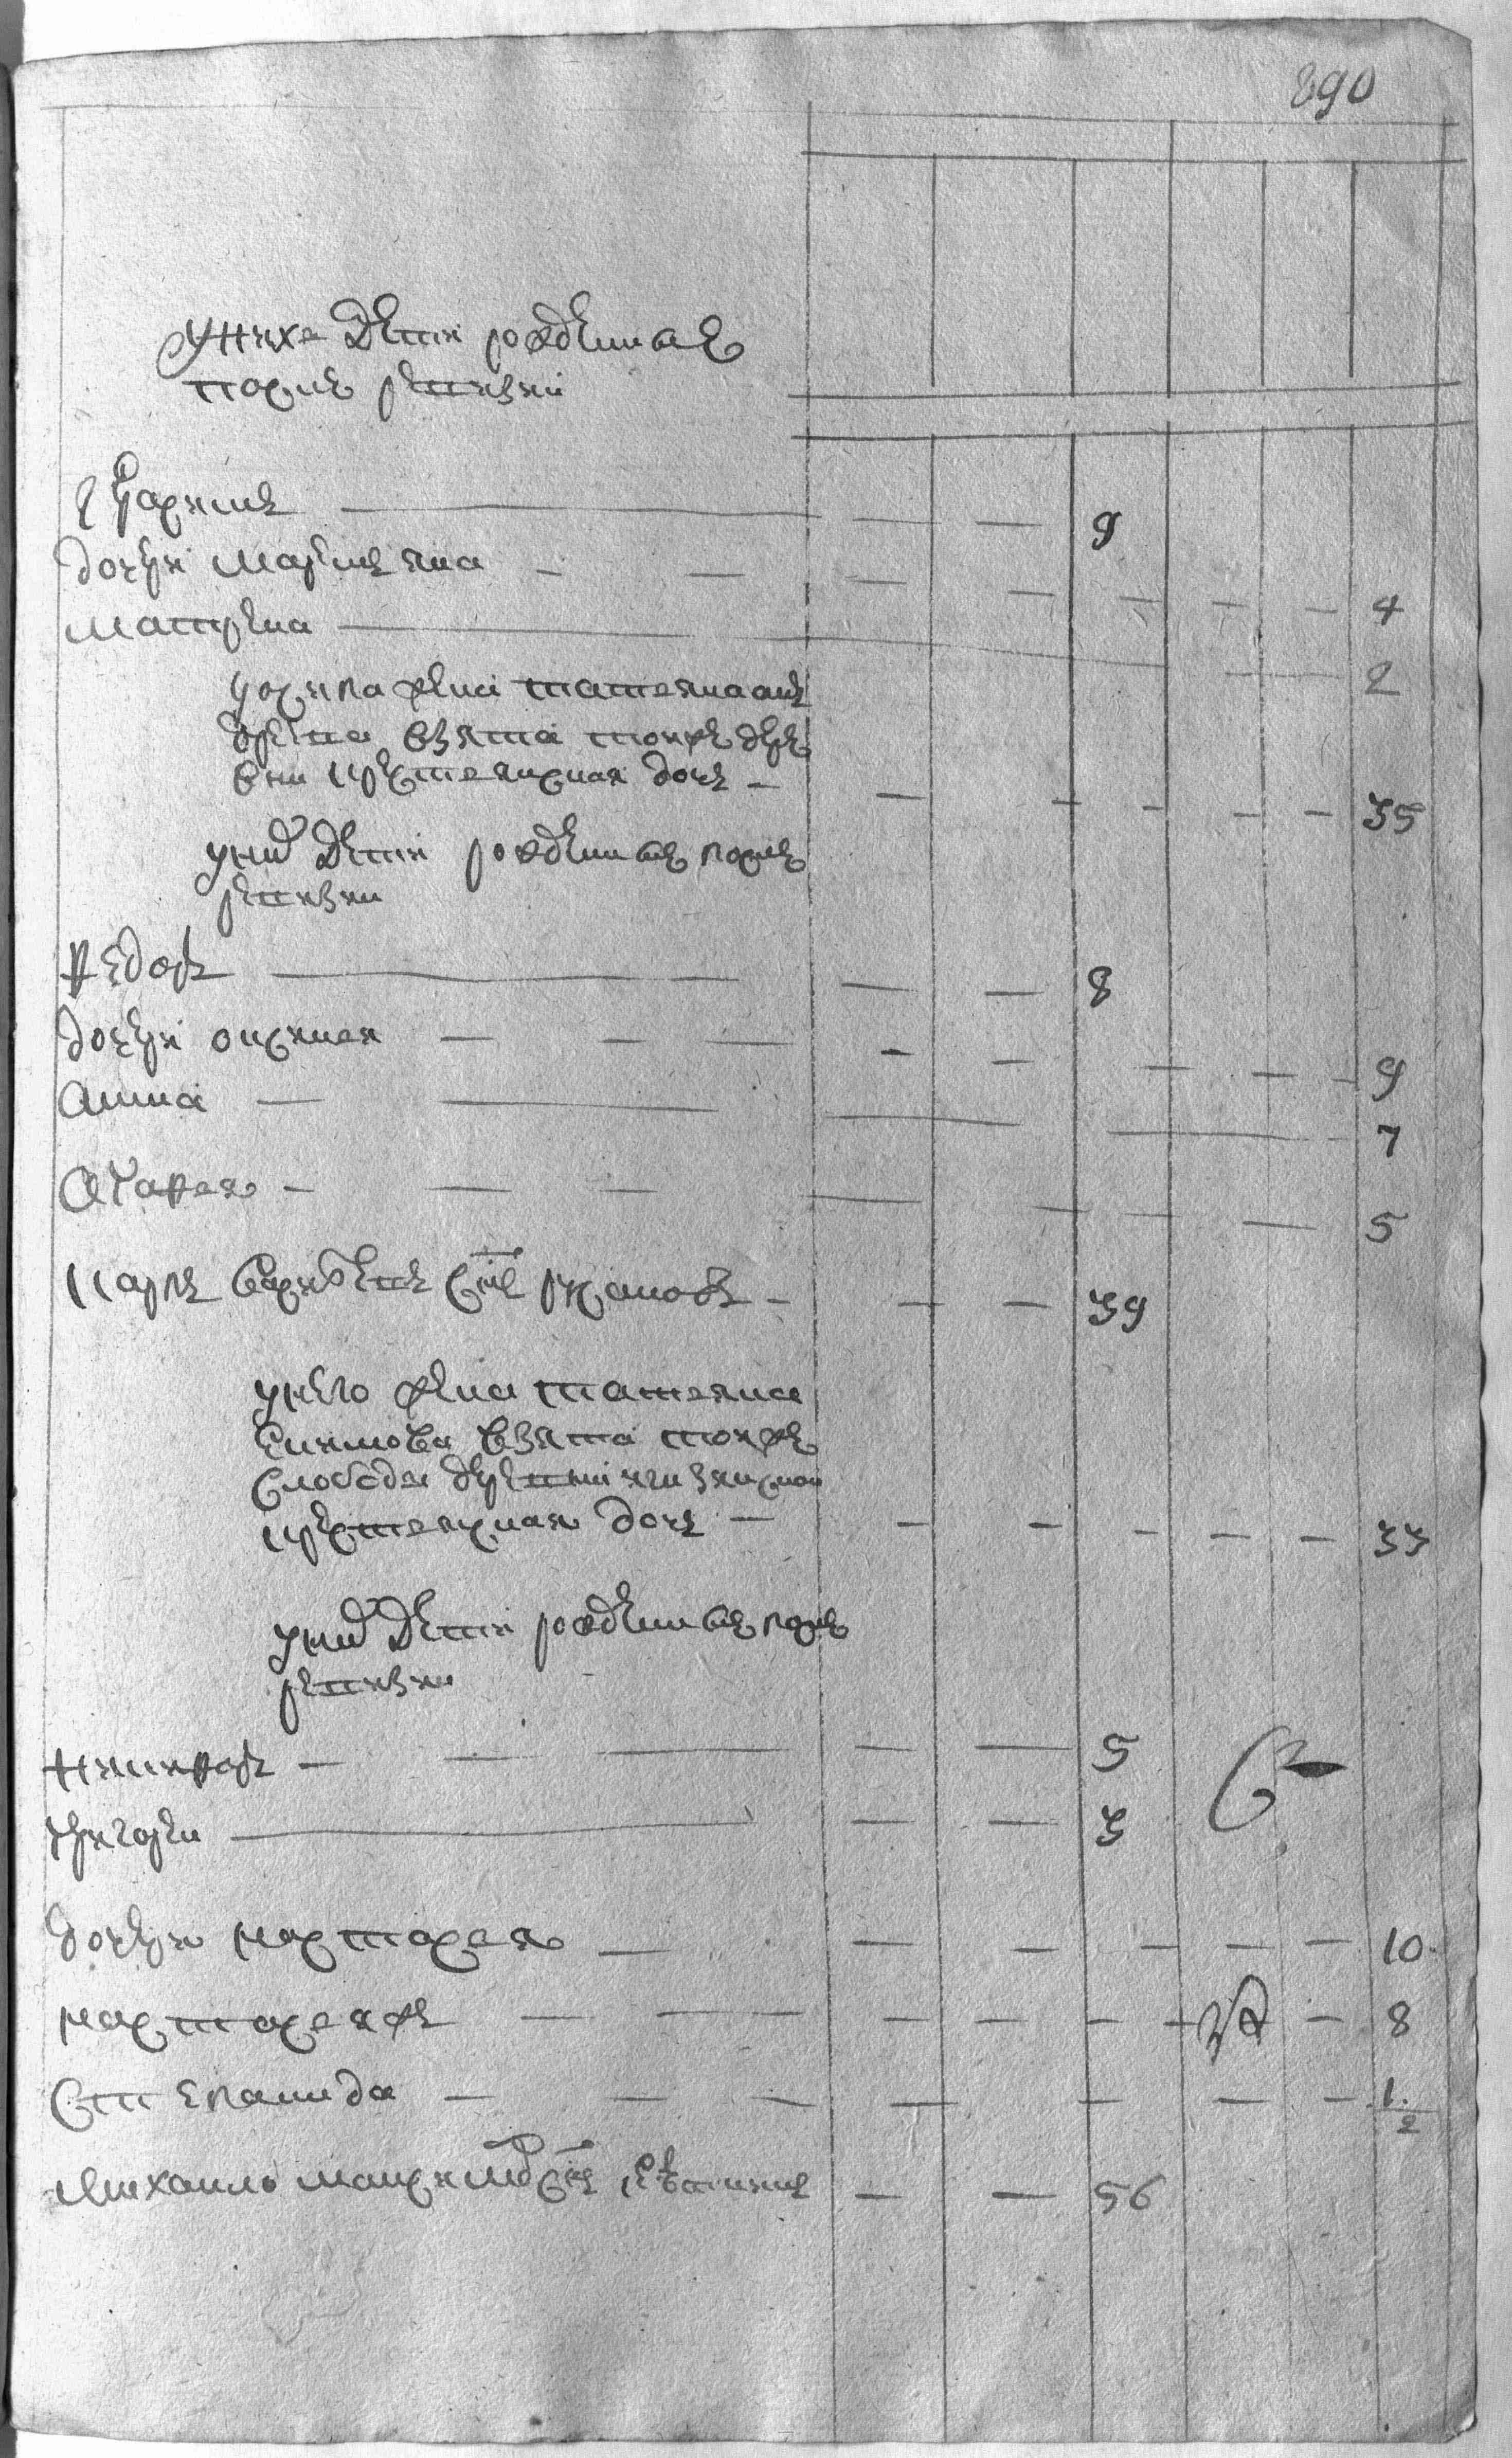 890
У нихъ дети рожденные
после ревизии
Гаврила 9
дочери Маремьяна 4
Матрена 2
жена Татьяна Ан
дреева взята той же дере
вни крестьянская дочь 35
у них дети рожденные после
ревизии
Федоръ 8
дочери Оксинья 9
Анна 7
Агафья 5
Карпъ Савельевъ сынъ Русановъ 39
у него жена Татьяна
Екимова взята той же
слободы деревни
крестьянская дочь 33
у них дети рожденные после
ревизии
Никифоръ 5
Григорей 3
дочери Настасья 10
Настасья жъ 8
Степанида 1/2
Михайло Максимовъ сынъ 56